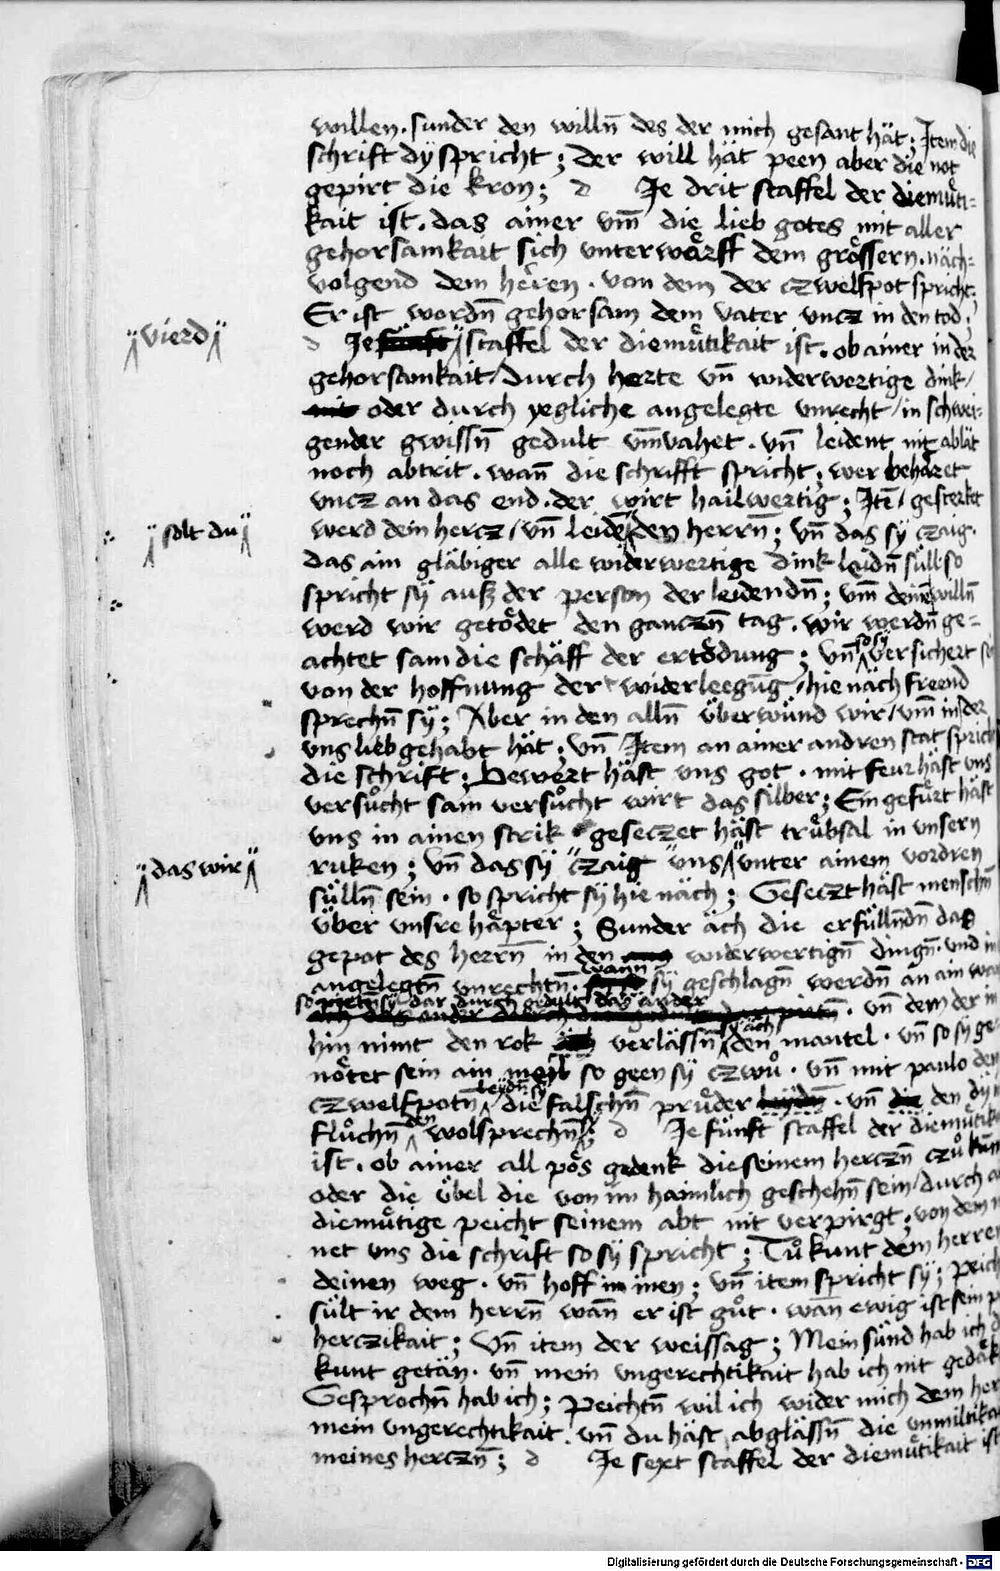 willen. sunder den willn̄ des der mich gesant hät; Item die
schrift dÿ spricht; der will hät peen aber die not
gepirt die kron; d Je drit staffel der diemuͤti=
kait ist. das ainer vm̄ die lieb gotes mit aller
gehorsamkait sich vnterwärff dem grössern. näch=
volgend dem herren. von dem der czwelfpot spricht.
Er ist wordn̄ gehorsam dem vater vncz in den tod;
vierd
d Je fünft staffel der diemuͤtikait ist. ob ainer in der
gehorsamkait/durch herte vn̄ widerwertige dink/
mit oder durch yegliche angelegte vnrecht/in schwei=
gender gwissn̄ gedult vm̄vahet. vn̄ leident nit ablät
noch abtrit. wan̄ die schrifft spricht; wer behäret
vncz an das end. der wirt hailwertig; Itē/gesterket
solt du
werd dein hercz/vn̄ leidē den herrn̄; vn̄ das sy czaig.
das ain gläbiger alle widerwertige dink leidn̄ süll so
spricht sÿ ausz der person der leidendn̄; vm̄ deinē willn̄
werd wir getödet den ganczn̄ tag. wir werdn̄ ge=
achtet sam die schäff der ertödung; vn̄ so sÿ versichert
von der hoffnung der widerleegūg/hie näch freend
sprechn̄ sÿ; Aber in den alln̄ überwünd wir/vm̄ in der
vns lieb gehabt hät; vn̄ Item an ainer andren stat sprich
die schrift; Bewért häst vns got. mit feur häst vns
versuͦcht sam versuͦcht wirt das silber; Eingefuͤrt häst
vns in ainen strik geseczet häst truͤbsal in vnsern
das wir
ruken; vn̄ das sÿ czaig vns vnter ainem vordren
sülln̄ sein. so spricht sÿ hie näch; Geseczt häst menschn̄
über vnsre häpter; Sunder äch die erfülln̄dn̄ das
gepot des herrn̄ in den widerwertign̄ dingn̄. und in
angelegtn̄ vnrechtn̄. wann sÿ geschlagn̄ werdn̄ an ain
so pietn̄ sÿ dar durch gedult das ander
vn̄ dem der in
hin nimt den rok verlässn̄ sÿ äch den mantel. vn̄ so sÿ ge
nötet sein ain meil so geen sÿ czwuͦ. vn̄ mit paulo den
czwelfpotn̄ leydn̄ sy die falschn̄ pruͤder leydn̄. vn̄ die den dÿ
fluͦchn̄ den wolsprechn̄ d Je fünft staffel der diemuͤtik
ist. ob ainer all pös gedenk die seinem herczn̄ czuͦ
oder die übel die von im haimlich geschehn̄ sein/durch
diemuͤtige peicht seinem abt nit verpirgt; von dem
net vns die schrift so sÿ spricht; Tuͦ kunt dem herren
deinen weg. vn̄ hoff in inen; vn̄ item spricht sÿ; peich
sült ir dem herrn̄ wan̄ er ist guͦt. wan ewig ist sein p
herczikait; Vn̄ item der weissag; Mein sünd hab ich d
kunt getän. vn̄ mein vngerechtikait hab ich nit gedäk
Gesprochn̄ hab ich; peichtn̄ wil ich wider mich dem her
mein vngerechtikait. vn̄ du häst abglässn̄ die vnmiltika
meines herczn̄; d Je sext staffel der diemuͤtikait ist
Digitalisierung gefördert durch die Deutsche Forschungsgemeinschaft - DFG